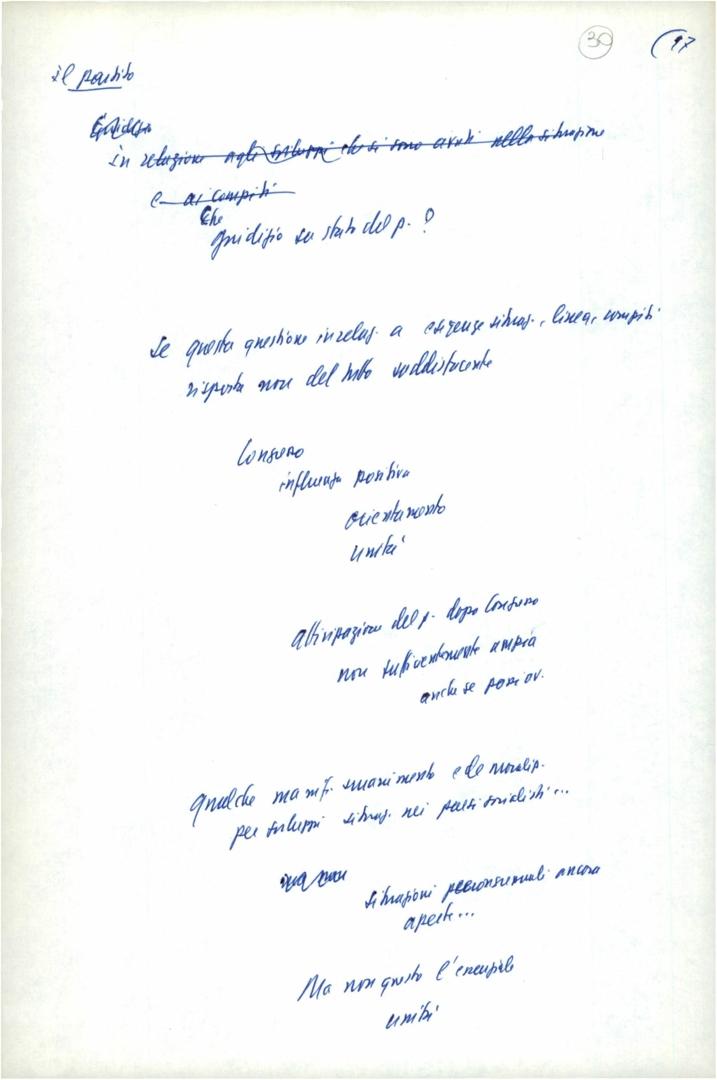 30 (97
Il partito
Giudizio
in relazione agli sviluppi che si sono avuti nella situazione
e ai compiti
Che
giudizio su stato del p. ?
Se questa questione in relaz. a esigenze situaz., linea, compiti
risposta non del tutto soddisfacente
Congresso
influenza positiva
orientamento
unità
attivizzazione del p. dopo Congresso
non sufficientemente ampia
anche se
Qualche manif. smarrimento e demoraliz.
per sviluppi situaz. nei paesi socialisti...
ma non
situazioni precongressuali ancora
aperte...
Ma non questo l'essenziale
unità